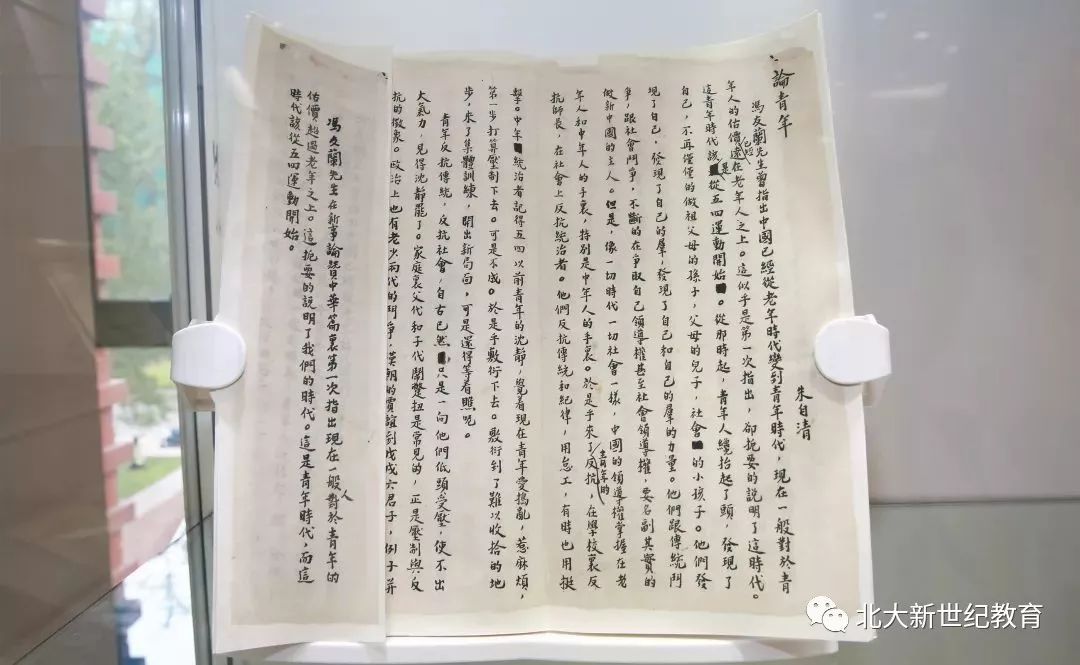 論青年
朱自清
馮友蘭先生曾指出中國已經從老年時代變到青年時代，現在一般對於青
年人的估價已超過在老年人之上。這似乎是第一次指出，卻扼要的說明了這時代。
這青年時代該是從五四運動開始。從那時起，青年人纔抬起了頭，發現了
自己，不再僅僅的做祖父母的孫子，父母的兒子，社會的小孩子。他們發
現了自己，發現了自己的羣，發現了自己和自己的羣的力量。他們跟傳統鬥
爭，跟社會鬥爭，不斷的在爭取自己領導權甚至社會領導權，要名副其實的
做新中國的主人。但是，像一切時代一切社會一樣，中國的領導權掌握在老
年人和中年人的手裏，特別是中年人的手裏。於是乎來了青年的反抗，在學校裏反
抗師長，在社會上反抗統治者。他們反抗傳統和紀律，用怠工，有時也用挺
擊。中年統治者記得五四以前青年的沈靜，覺着現在青年愛搗亂，惹麻煩，
第一步打算壓制下去。可是不成。於是乎敷衍下去。敷衍到了難以收拾的地
步，來了集體訓練，開出新局面，可是還得等着瞧呢。
青年反抗傳統，反抗社會，自古已然，只是一向他們低頭受壓，使不出
大氣力，見得沈靜罷了。家庭裏父代和子代鬧彆扭是常見的，正是壓制與反
抗的徵象。政治上也有老少兩代的鬥爭，漢朝的賈誼到戊戌六君子，例子並
馮友蘭先生在新事論贊中華篇裏第一次指出現在一般人對於青年的
估價超過老年之上。這扼要的說明了我們的時代。這是青年時代，而這
時代該從五四運動開始。
北大新世纪教育